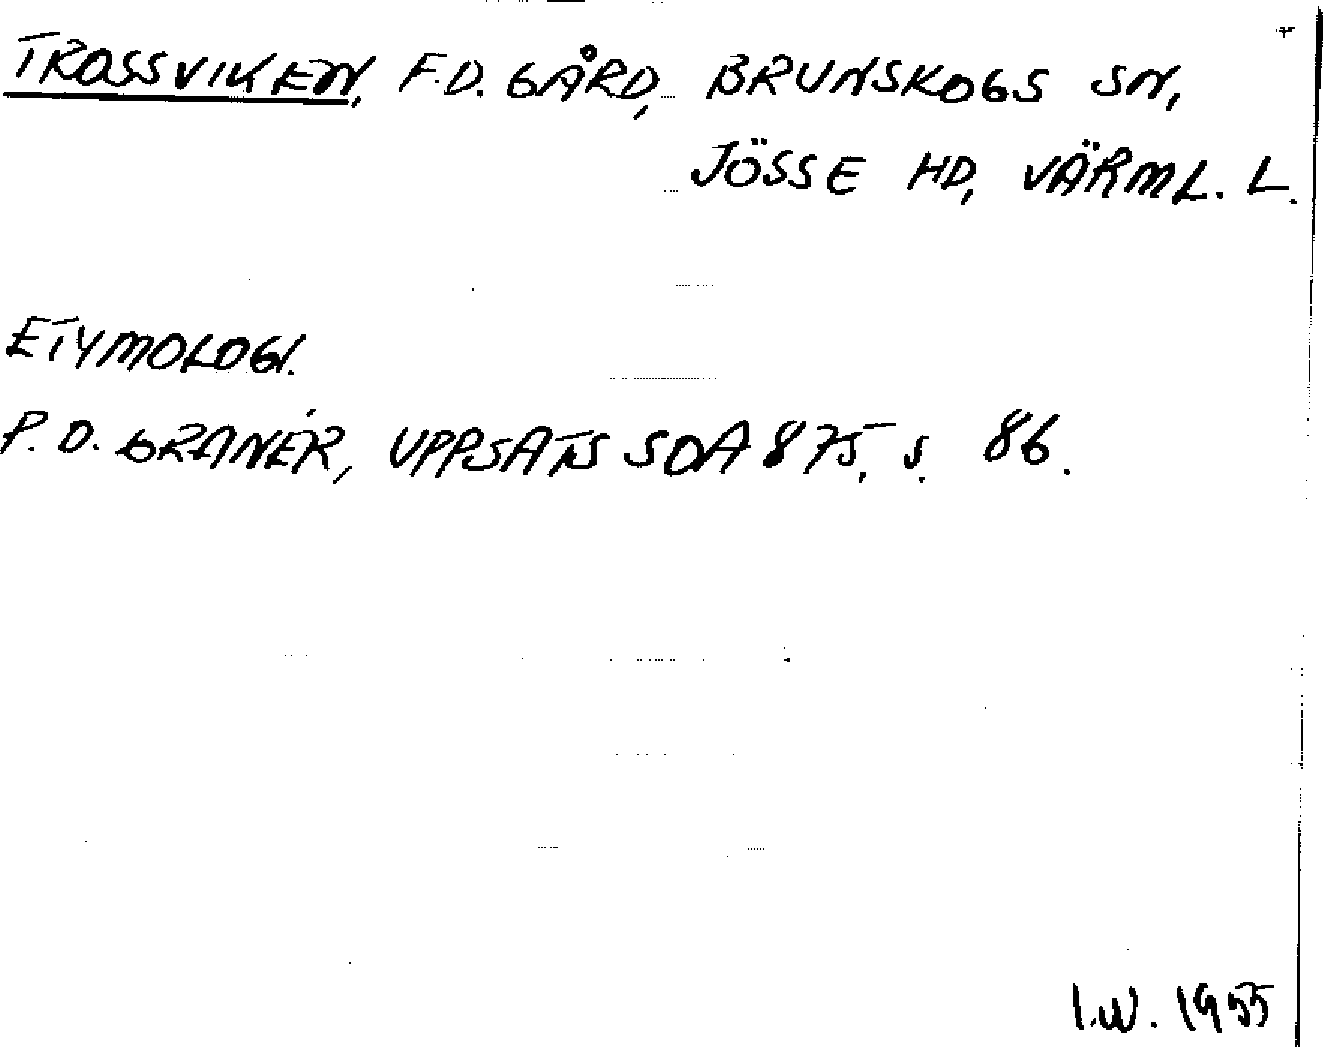 TROSSVIKEN, F.D. GÅRD, BRUNSKOGS SN,
JÖSSE HD, VÄRML. L.
ETYMOLOGI.
P. D. GRANÉR, UPPSATS SOA 875, S. 86.
I.W. 1955